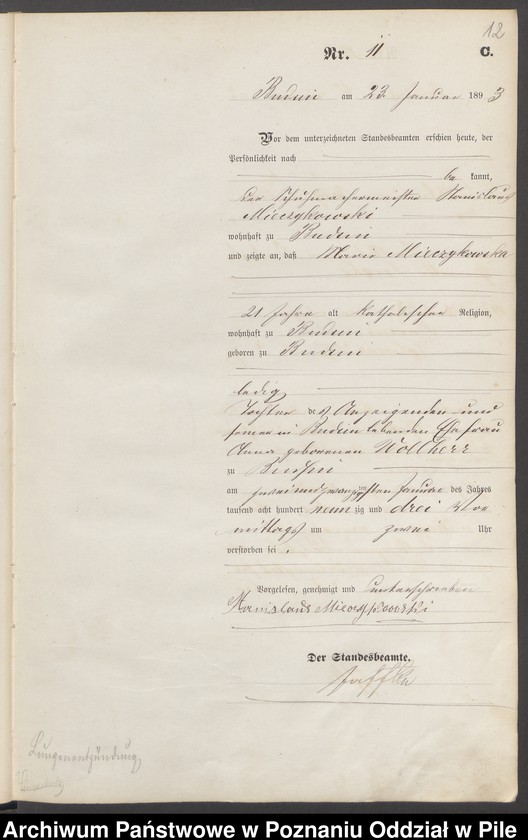 12
Nr. 11 C.
am 23 Januar 1893
Vor dem unterzeichneten Standesbeamten erschien heute, der
Persönlichkeit nach
be kannt,
der Schuhmachermeister Stanislaus
Mieczykowski
wohnhaft zu
und zeigte an, daß Marie Mieczykowska
21 Jahre alt katholischer Religion,
wohnhaft zu
geboren zu
ledig
Tochter des Anzeigenden und
seiner in lebenden Ehefrau
Anna geborenen
zu
am zweiundzwanzigsten Januar des Jahres
tausend acht hundert neun zig und drei Vor
mittags um zwei Uhr
verstorben sei.
Vorgelesen, genehmigt und unterschrieben
Stanislaus
Der Standesbeamte.
Lungenentzündung
Archiwum Państwowe w Poznaniu Oddział w Pile